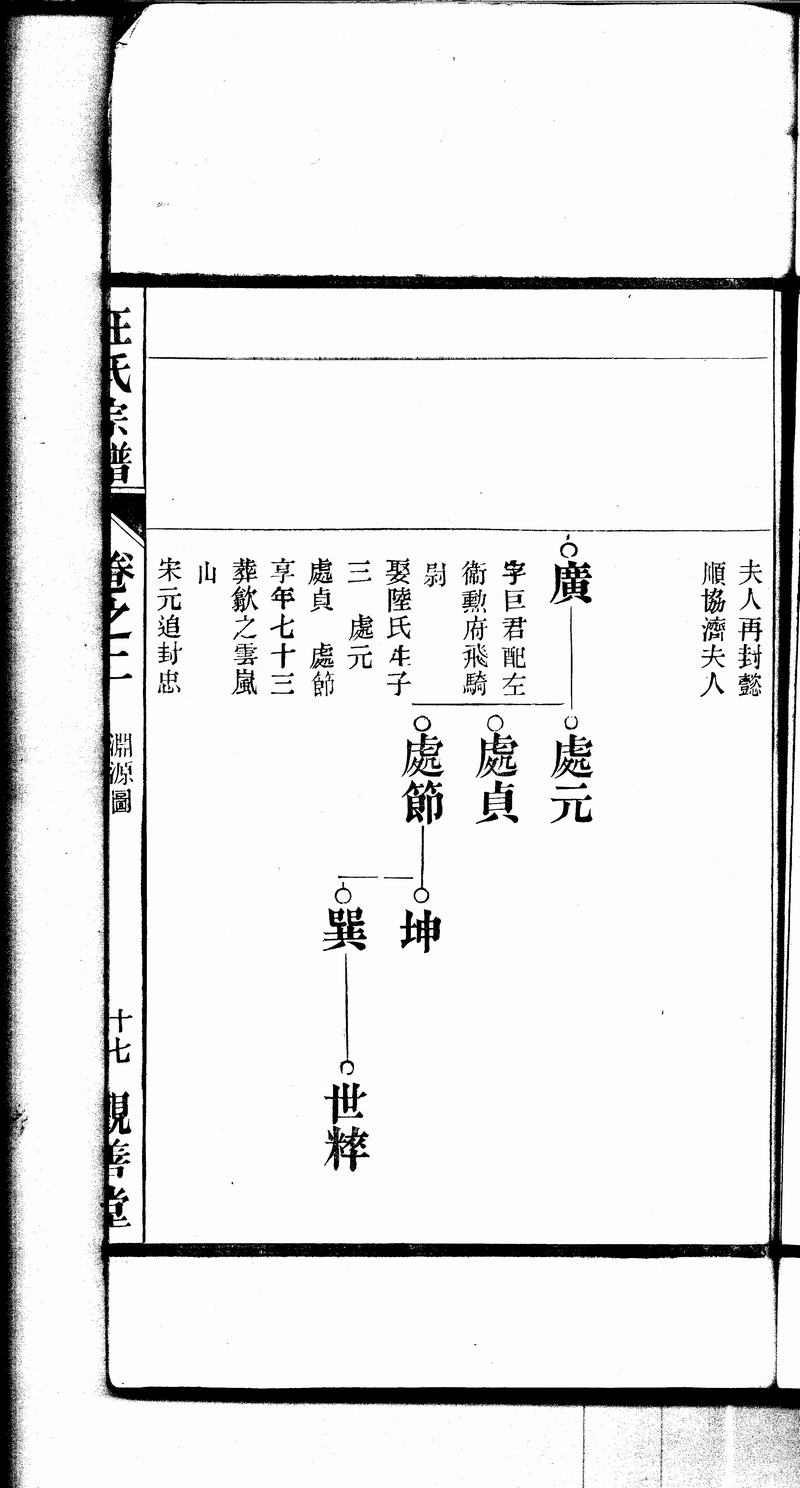 夫人再封懿
順協濟夫人
廣
字巨君配左
衞勲府飛騎
尉
娶陸氏生子
三　處元
處貞　處節
享年七十三
葬歙之雲嵐
山
宋元追封忠
處元
處貞
處節
坤
巽
世粹
汪氏宗譜
卷之二
淵源圖
十七
親善堂